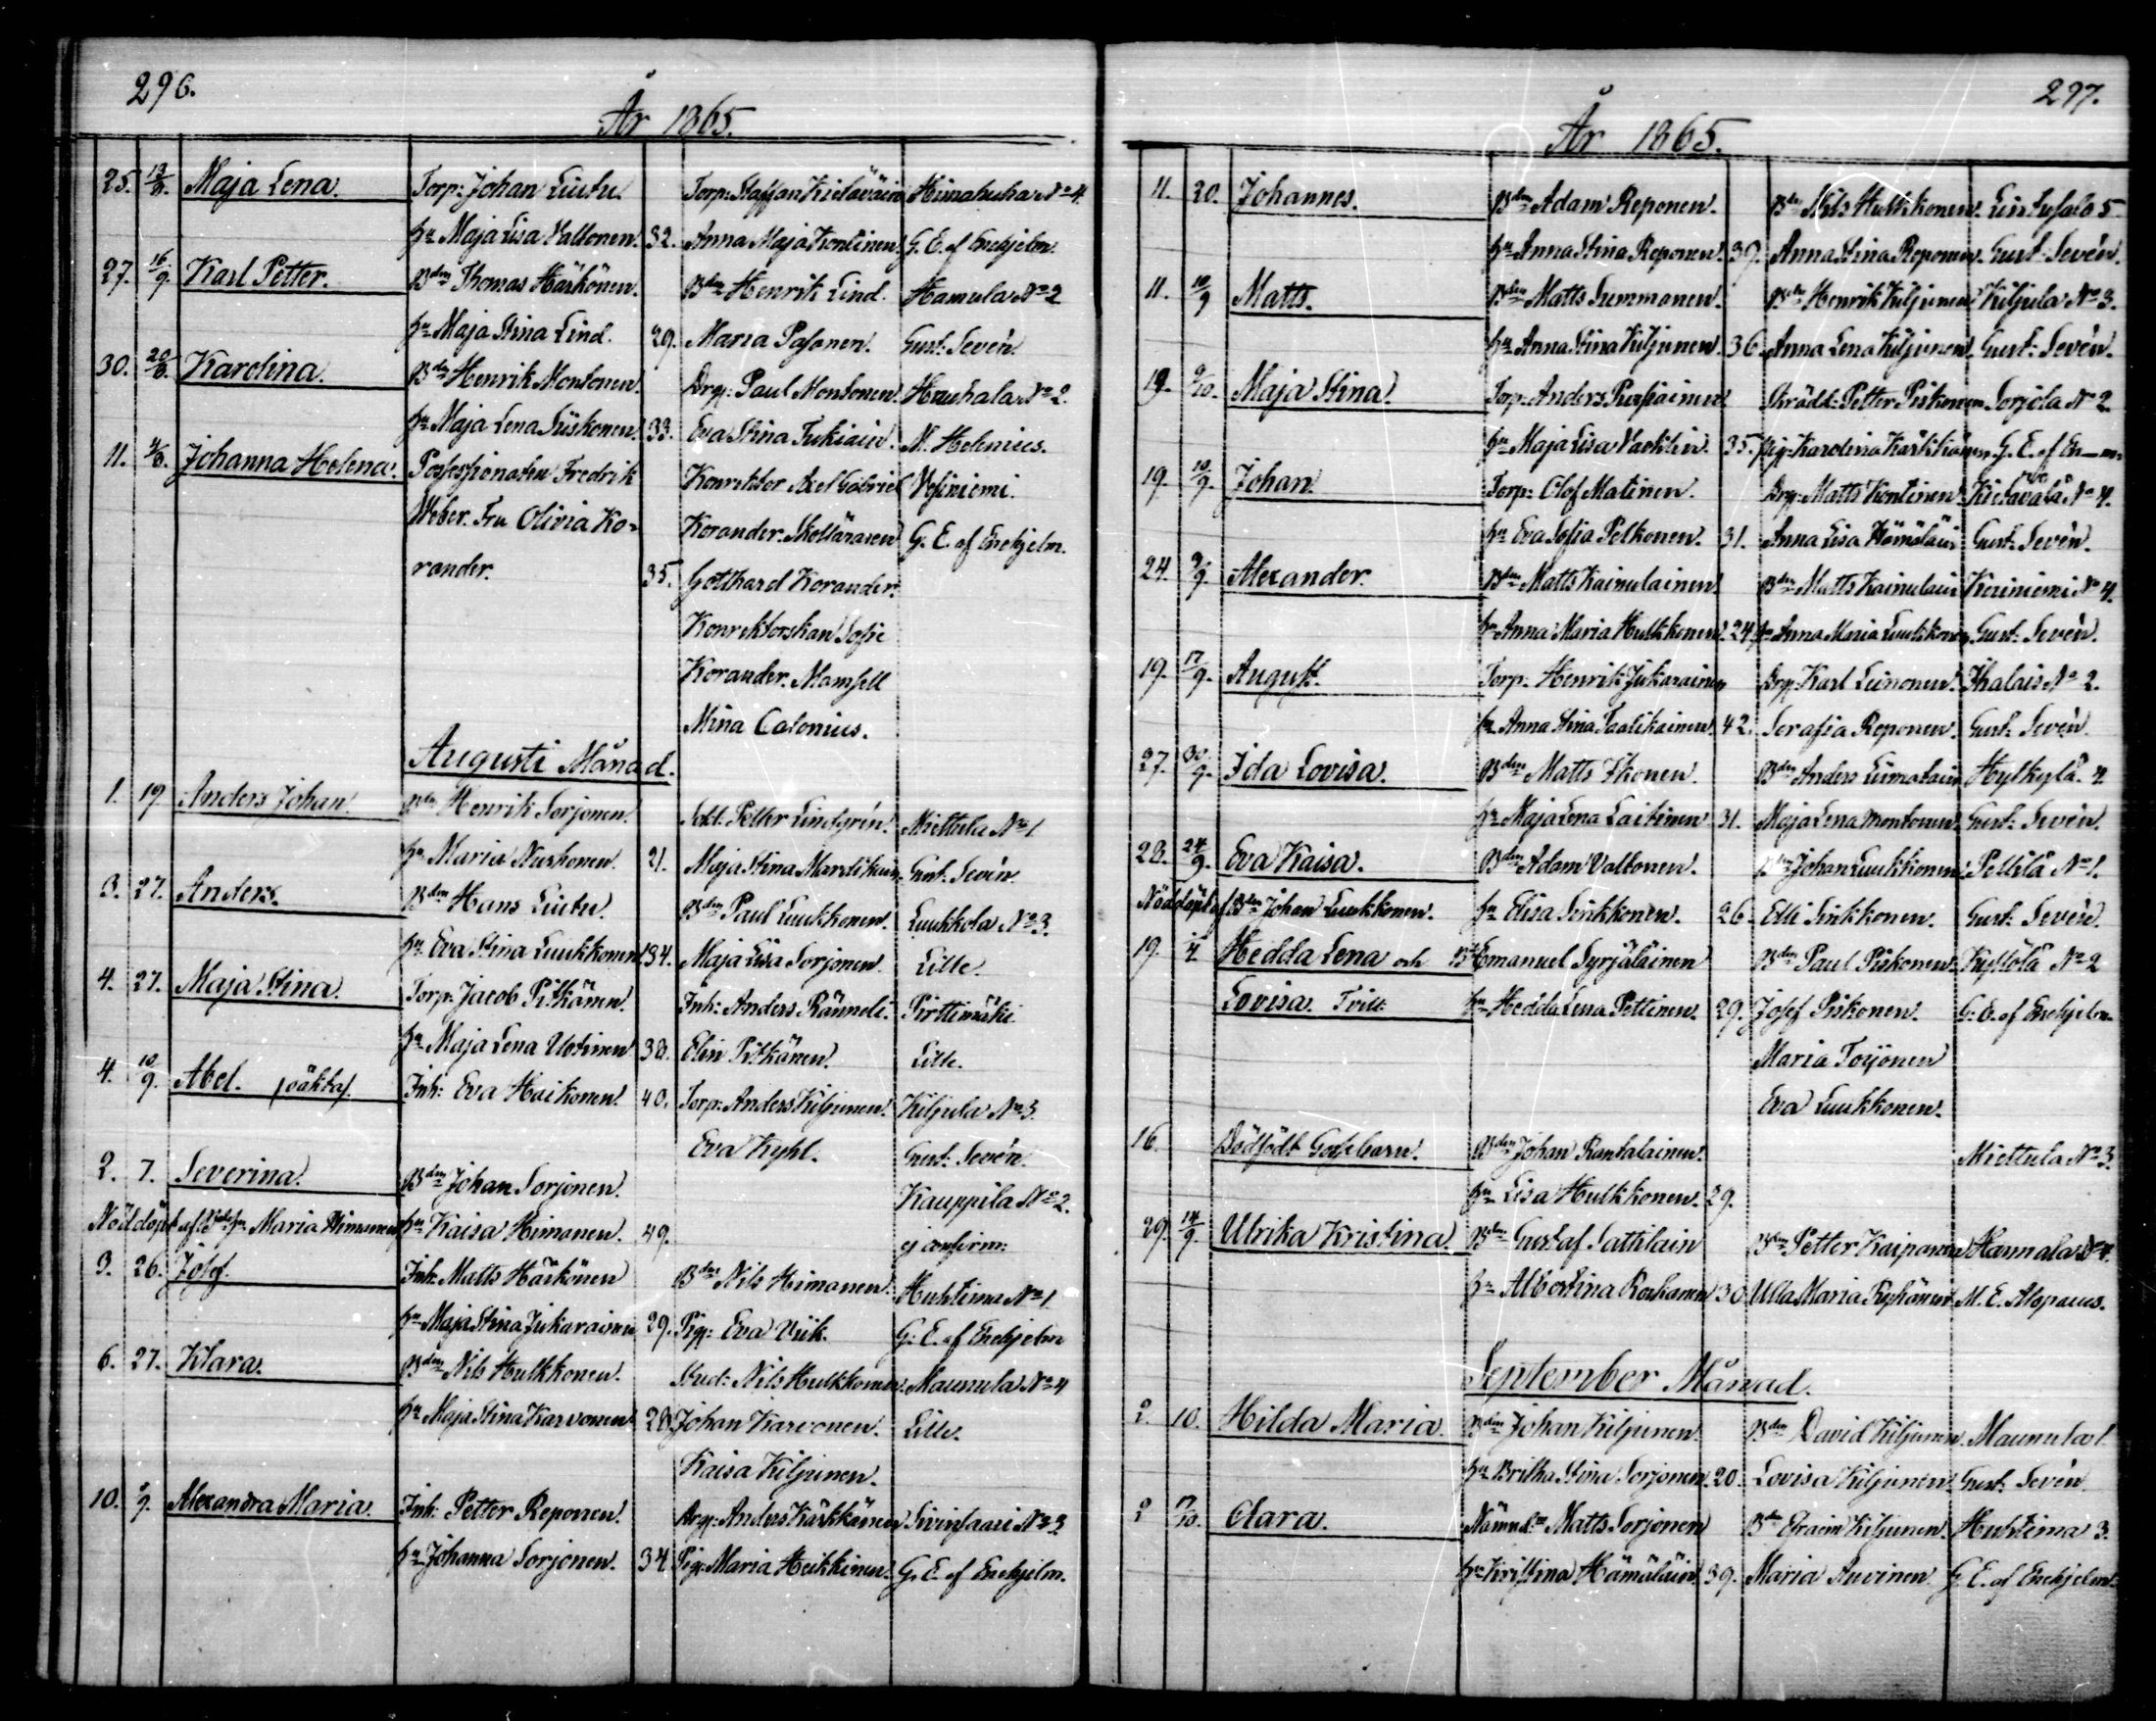 296.
År 1865.
25. 13/8. Maja Lena. Torp: Johan Liutu. Torp: Staffan Kietäväin Himahuha No 4.
hu Maja Lisa Valtonen. 32. Anna Maja Kontinen. G. E. af Enehjelm.
27. 16/9. Karl Petter. Bdn Thomas Härkönen. Bdn Henrik Lind. Hamula No 2
hu Maja Stina Lind. 29. Maria Pasonen. Gust: Sevén.
30. 20/8. Karolina. Bdn Henrik Montonen. Drg: Paul Montonen. Haukala No 2.
hu Maja Lena Siiskonen. 33. Eva Stina Tukiain. M. Helenius.
11. Johanna Helena. Possessionaten Fredrik Konrektor Axel Gabriel Vesiniemi.
Weber. Fru Olivia Ko- Korander. G. E. af Enehjelm.
rander. 35. Gotthard Korander.
Konrektorskan Sofie
Korander. Mamsell
Mina Calonius.
Augusti Månad.
1. 19. Anders Johan. Bdn Henrik Sorjonen. Sold: Petter Lindgrén. Miettula No 1
hu Maria Nuskonen. 21. Maja Stina Gust: Sevén.
3. 27. Anders. Bdn Hans Liutu. Bdn Paul Luukkonen. Luukkola No 3.
hu Eva Stina Luukkonen. 34. Maja Lisa Sorjonen. Lille.
4. 27. Maja Stina. Torp: Jacob Pitkänen. Inh: Anders Ränneli. Pirttimäki
hu Maja Lena Uotinen 38. Elin Pitkänen. Lille.
4. 10/9. Abel. /oäkta/. Inh: Eva Haikonen. 40. Torp: Anders Kiljunen. Kiljula No 3.
Eva Kyhl. Gust: Sevén.
2. 7. Severina. Bdn Johan Sorjonen. Kauppila No 2.
Nöddöpt af Bde hu Maria Himanen hu Kaisa Himanen. 49. ej confirm:
3. 26. Josef. Inh: Matts Härkönen Bdn Nils Himanen. Huhtima No 1
hu Maja Stina Jukarainen 29. Pig: Eva Viik. G. E. af Enehjelm
6. 27. Klara. Bdn Nils Hulkkonen. Stud: Nils Hulkkonen. Maunula No 4
hu Maja Stina Karvonen 28 Johan Karvonen. Lille.
Kaisa Kiljunen.
10. Alexandra Maria. Inh: Petter Reponen. Drg: Anders Kärkkäinen Sivinsaari No 3
hu Johanna Sorjonen. 34 Pig: Maria Heikkinen. G. E. af Enehjelm.
297.
År 1865.
11. 20. Johannes. Bdn Adam Reponen. Bdn Nils Hulkkonen. Lintusalo 5
hu Anna Stina Reponen. 39. Anna Stina Reponen. Gust: Sevén.
11. 10/9 Matts. Bdn Matts Summanen. Bdn Henrik Kiljunen Kiljula No 3.
hu Anna Stina Kiljunen. 36. Anna Lena Kiljunen. Gust: Sevén.
19. 9/10. Maja Stina. Torp: Anders Pursiainen Skrädd: Petter Piskonen Sorjola No 2.
hu Maja Lisa 35. Pig: Karolina Kärkkäinen G. E. af En—m
19. 10/9. Johan. Torp: Olof Matinen. Drg: Matts Kontinen Kietävälä No 4.
hu Eva Sofia Pelkonen. 31. Anna Lisa Hämäläin Gust: Sevén.
24. 9/9. Alexander. Bdn Matts Kainulainen. Bdn Matts Kainulain Keriniemi No 4.
hu Anna Maria Hulkkonen. 24. hu Anna Maria Luukkonen. Gust: Sevén.
19. 17/9. August. Torp: Henrik Jukarainen Drg: Karl Leinonen. Ihalais No 2.
hu Anna Stina Taalikainen. 42. Serafia Reponen. Gust: Sevén.
27. 30/9. Ida Lovisa. Bdn Matts Ikonen. Bdn Anders Liimatain Hylkylä. 4
hu Maja Lena Laitinen 31. Maja Lena Montonen. Gust: Sevén.
28. 24/9. Eva Kaisa. Bdn Adam Valtonen. Bdn Johan Luukkonen: Pellilä No 1.
Nöddöpt af Bdn Johan Luukkonen. hu Elisa Sinkkonen. 26. Elli Sinkkonen. Gust: Sevén.
19. Hedda Lena och Bdn Emanuel Syrjäläinen Bdn Paul Piskonen. Kyllölä No 2
Lovisa. Tvill: hu Hedda Lena Pettinen. 29. Josef Piskonen. G. E. af Enehjelm.
Maria Torjonen
Eva Luukkonen.
16. Dödfödt Gossebarn. Bdn Johan Rantalainen. Miettula No 3.
hu Lisa Hulkkonen. 29.
29. 14/9. Ulrika Kristina. Bdn Gustaf Sattilain Bdn Petter Kaipanen Hannala No 4.
hu Albertina Roukanen 30. Ulla Maria Repkänen M. E. Alopaeus.
September Månad.
2. 10. Hilda Maria. Bdn Johan Kiljunen. Bdn David Kiljunen. Maunula 1.
hu Britha Stina Sorjonen. 20. Lovisa Kiljunen. Gust: Sevén.
2 17/10. Clara. Nämndm Matts Sorjonen Bdn Efraim Kiljunen. Huhtima 3.
hu Kristina Hämäläin 39. Maria Auvinen. G. E. af Enehjelm.